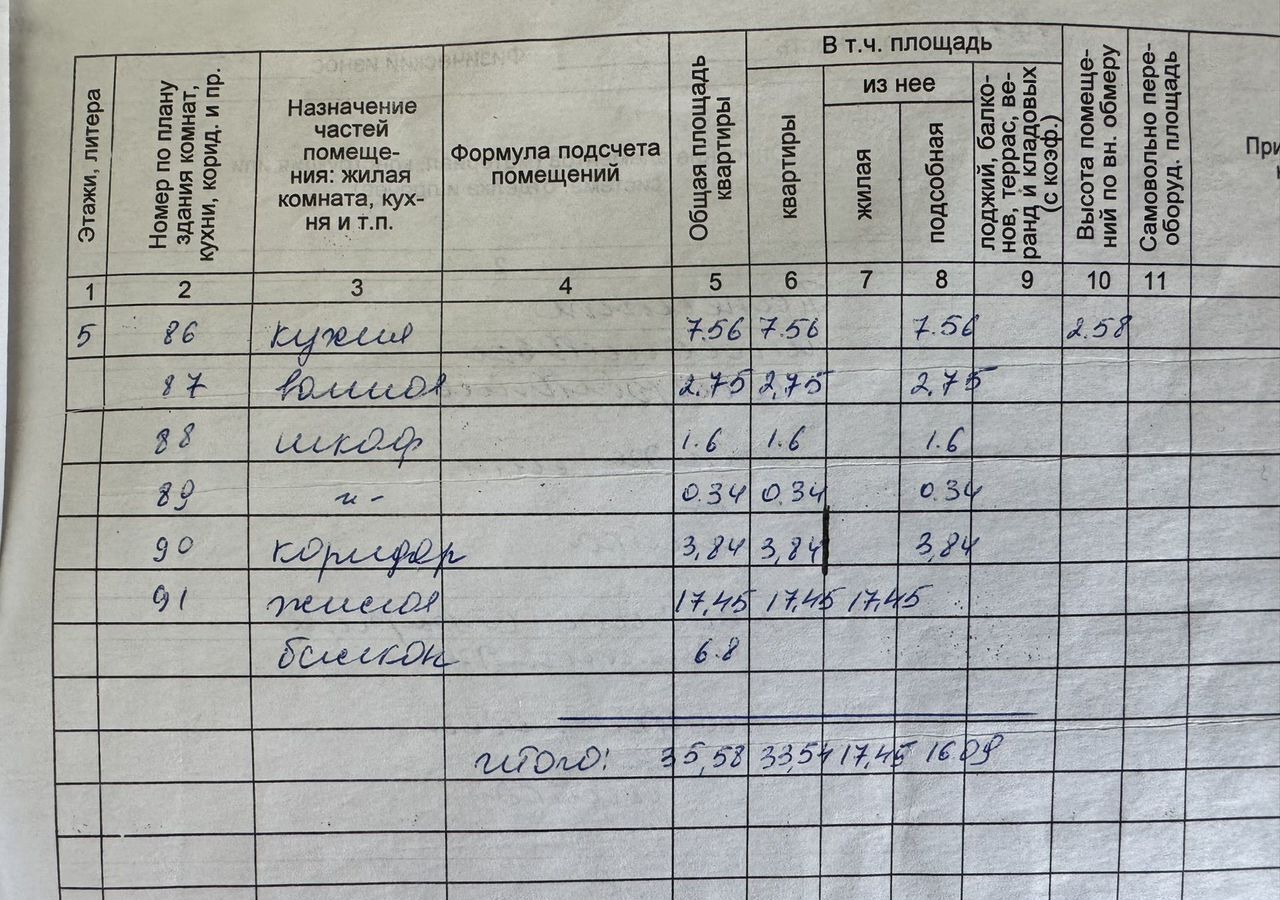 Этажи, литера
Номер по плану
здания комнат,
кухни, корид. и пр.
Назначение
частей
помеще-
ния: жилая
комната, кух-
ня и т.п.
Формула подсчета
помещений
Общая площадь
квартиры
В т.ч. площадь
из нее
квартиры
жилая
подсобная
лоджий, балко-
нов, террас, ве-
ранд и кладовых
(с коэф.)
Высота помеще-
ний по вн. обмеру
Самовольно пере-
оборуд. площадь
При
1 2 3 4 5 6 7 8 9 10 11
5 86 кухня 7.56 7.56 7.56 2.58
87 ванная 2.75 2,75 2,75
88 шкаф 1.6 1.6 1.6
89 -"- 0.34 0.34 0.34
90 коридор 3,84 3,84 3,84
91 жилая 17,45 17,45 17,45
балкон 6.8
итого: 35,58 33,54 17,45 16.09